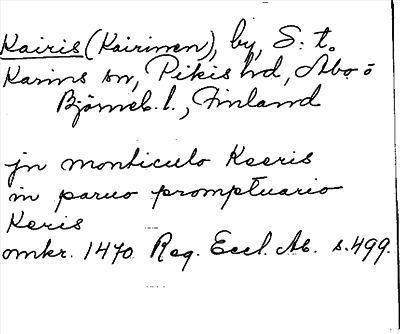 Kairis (Kairinen), by, S:t.
Karins sn, Pikis hd, Åbo o
Björneb. l., Finland
jn monticulo Keeris
in paruo promptuario
Keris
omkr. 1470 Reg. Eccl. Ab. s. 499.